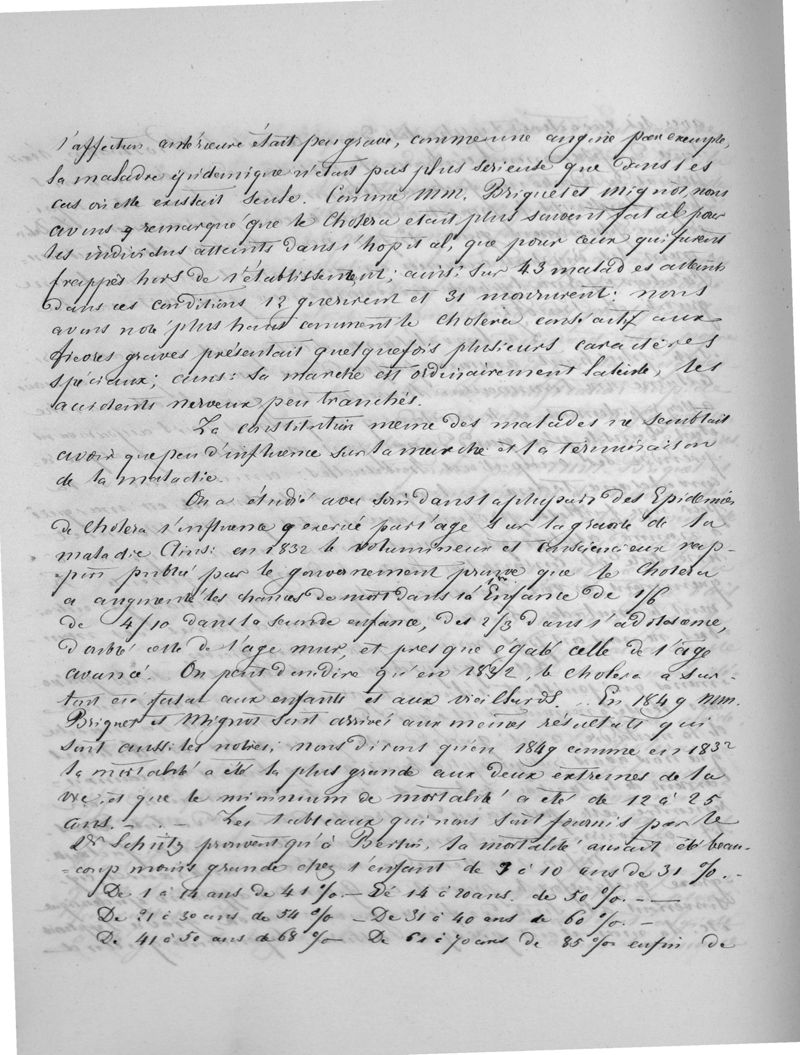 l'affection antérieure était peu grave, comme une angine par exemple,
la maladie épidemique n'était pas plus serieuse que dans les
cas où elle existait seule. Comme MM. Briquet et Mignot, nous
avons remarqué que le Cholera etait plus souvent fatal pour
les individus atteints dans l'hopital, que pour ceux qui furent
frappés hors de l'établissement; ainsi sur 43 malades atteints
dans ces conditions 12 guerirent et 31 moururent: nous
avons noté plus haut comment le cholera consécutif aux
fievres graves présentait quelquefois plusieurs caractères
spéciaux; ainsi: sa marche est ordinairement latente, les
accidents nerveux peu tranchés.
La constitution meme des malades ne semblait
avoir que peu d'influence sur la marche et la terminaison
de la maladie.
On a étudié avec soin dans la plupart des Epidemies
de Cholera l'influence exercée par l'age sur la gravité de la
maladie Ainsi en 1832 le volumineux et consciencieux rap-
port publié par le gouvernement prouve que le Cholera
a augmenté les chances de mort dans la 1ère Enfance de 1/6
de 4/10 dans la seconde enfance, des 2/3 dans l'adolescence,
doublé celle de l'age mur, et presque égalé celle de l'âge
avancé. On peut donc dire qu'en 1832, le cholera a sur-
tout été fatal aux enfants et aux vieillards. .. En 1849 MM.
Briquet et Mignot sont arrivés aux mêmes résultats qui
sont aussi les notres, nous dirons qu'en 1849 comme en 1832
la mortalité a été la plus grande aux deux extremes de la
vie, et que le minimum de mortalité a été de 12 à 25
ans. - . - Les tableaux qui nous sont fournis par le
Dr Schütz prouvent qu'à Berlin, la mortalité aurait été beau-
-coup moins grande chez l'enfant de à 10 ans de 31 %. -
De 1 à 14 ans de 41 %. — De 14 à 20 ans. de 50 %. - —
De 21 à 30 ans de 54 % — De 31 à 40 ans de 60 %. -
De 41 à 50 ans de 68 % — De 61 à 70 ans de 85 % enfin de